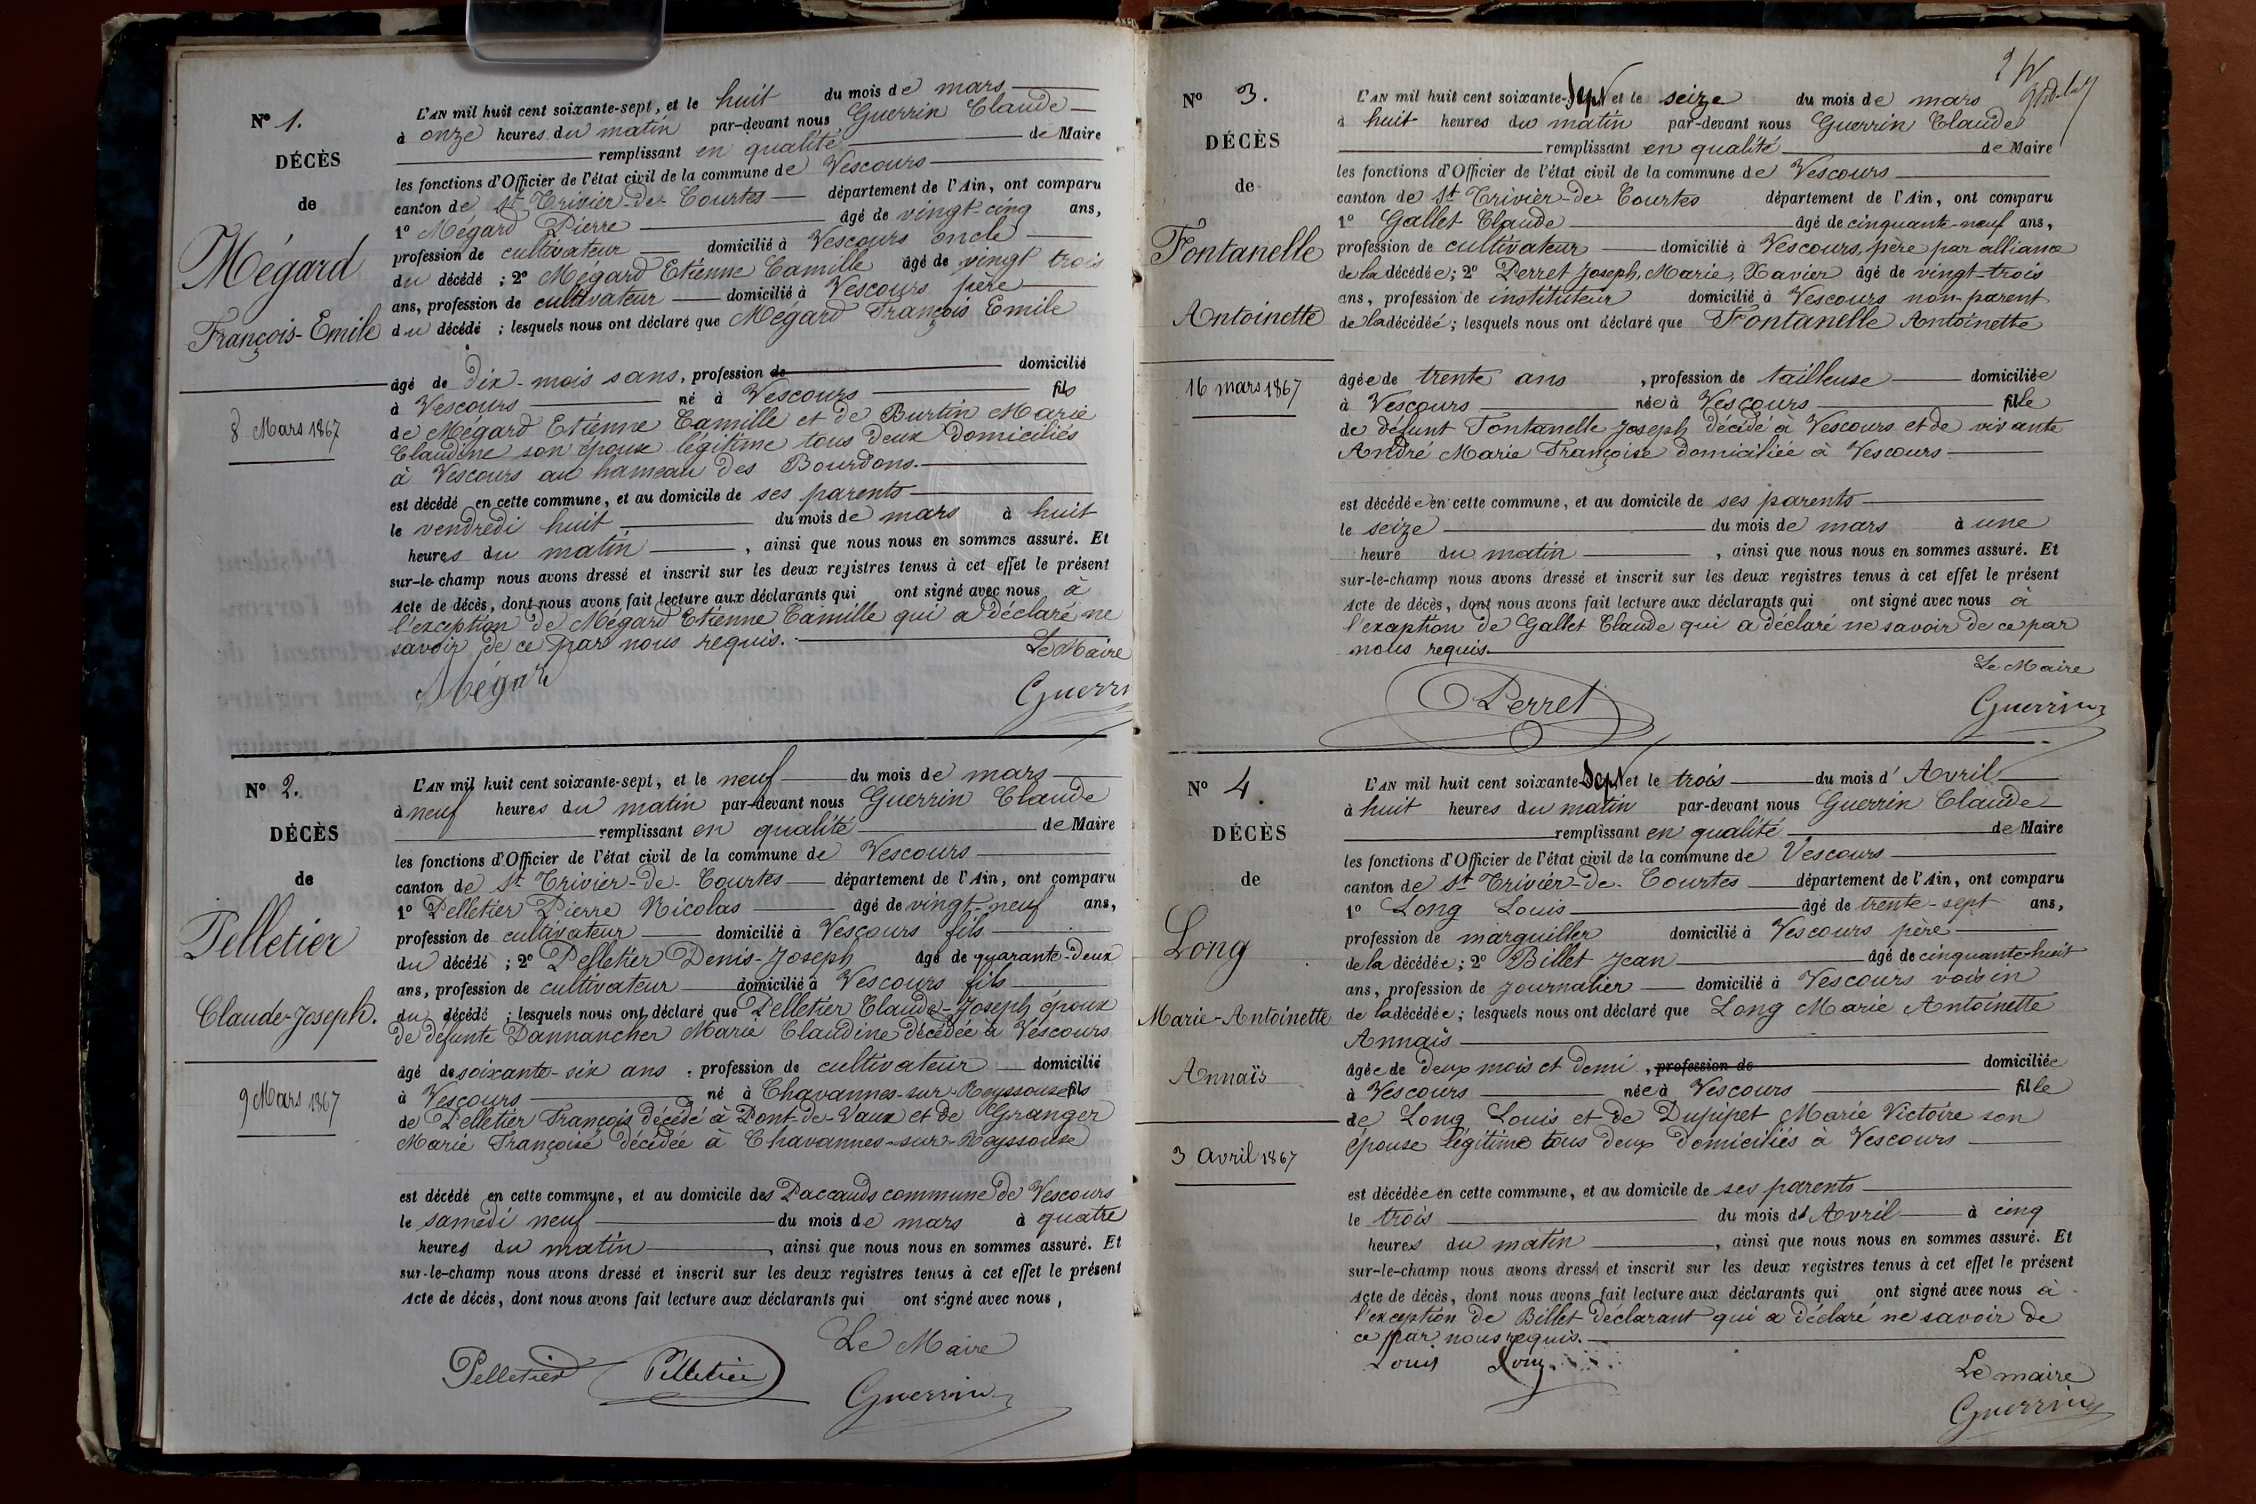 N° 1.
DÉCÈS
de
Mégard
François-Emile
8 Mars 1867
L'AN mil huit cent soixante-sept, et le huit du mois de mars
à onze heures du matin par-devant nous Guerrin Claude
remplissant en qualité de Maire
les fonctions d'Officier de l'état civil de la commune de Vescours
canton de St Trivier-de-Courtes département de l'Ain, ont comparu
1° Mégard Pierre âgé de vingt-cinq ans,
profession de cultivateur domicilié à Vescours oncle
du décédé ; 2° Mégard Etienne Camille âgé de vingt trois
ans, profession de cultivateur domicilié à Vescours père
du décédé ; lesquels nous ont déclaré que Mégard François Emile
âgé de dix-mois sans, profession de domicilié
à Vescours né à Vescours fils
de Mégard Etienne Camille et de Burtin Marie
Claudine son épouse légitime tous deux domiciliés
à Vescours au hameau des Bourdons.
est décédé en cette commune, et au domicile de ses parents
le vendredi huit du mois de mars à huit
heures du matin , ainsi que nous nous en sommes assuré. Et
sur-le-champ nous avons dressé et inscrit sur les deux registres tenus à cet effet le présent
Acte de décès, dont nous avons fait lecture aux déclarants qui ont signé avec nous à
l'exception de Mégard Etienne Camille qui a déclaré ne
savoir de ce par nous requis.
Le Maire
Mégard
Guerri
N° 2.
DÉCÈS
de
Pelletier
Claude-Joseph.
9 Mars 1867
L'AN mil huit cent soixante-sept, et le neuf du mois de mars
à neuf heures du matin par-devant nous Guerrin Claude
remplissant en qualité de Maire
les fonctions d'Officier de l'état civil de la commune de Vescours
canton de St Trivier-de-Courtes département de l'Ain, ont comparu
1° Pelletier Pierre Nicolas âgé de vingt-neuf ans,
profession de cultivateur domicilié à Vescours fils
du décédé ; 2° Pelletier Denis-Joseph âgé de quarante-deux
ans, profession de cultivateur domicilié à Vescours fils
du décédé ; lesquels nous ont déclaré que Pelletier Claude-Joseph époux
de défunte Dannancher Marie Claudine décédée à Vescours
âgé de soixante-six ans , profession de cultivateur domicilié
à Vescours né à Chavannes-sur-Reyssouze fils
de Pelletier François décédé à Pont-de-Vaux et de Granger
Marie Françoise décédée à Chavannes-sur-Reyssouze
est décédé en cette commune, et au domicile des Paccauds commune de Vescours
le samedi neuf du mois de mars à quatre
heures du matin , ainsi que nous nous en sommes assuré. Et
sur-le-champ nous avons dressé et inscrit sur les deux registres tenus à cet effet le présent
Acte de décès, dont nous avons fait lecture aux déclarants qui ont signé avec nous ,
Le Maire
Pelletier Pelletier
Guerrin
N° 3.
DÉCÈS
de
Fontanelle
Antoinette
16 mars 1867
L'AN mil huit cent soixante-sept et le seize du mois de mars
à huit heures du matin par-devant nous Guerrin Claude
remplissant en qualité de Maire
les fonctions d'Officier de l'état civil de la commune de Vescours
canton de St Trivier-de Courtes département de l'Ain, ont comparu
1° Gallet Claude âgé de cinquante-neuf ans,
profession de cultivateur domicilié à Vescours, père par alliance
de la décédée ; 2° Perret Joseph, Marie, Xavier âgé de vingt-trois
ans, profession de instituteur domicilié à Vescours non-parent
de la décédée ; lesquels nous ont déclaré que Fontanelle Antoinette
âgée de trente ans , profession de tailleuse domiciliée
à Vescours née à Vescours fille
de défunt Fontanelle Joseph décédé à Vescours et de vivante
André Marie Françoise domiciliée à Vescours
est décédée en cette commune, et au domicile de ses parents
le seize du mois de mars à une
heure du matin , ainsi que nous nous en sommes assuré. Et
sur-le-champ nous avons dressé et inscrit sur les deux registres tenus à cet effet le présent
Acte de décès, dont nous avons fait lecture aux déclarants qui ont signé avec nous à
l'exception de Gallet Claude qui a déclaré ne savoir de ce par
nous requis.
Le Maire
Perret
Guerrin
N° 4.
DÉCÈS
de
Long
Marie-Antoinette
Annaïs
3 Avril 1867
L'AN mil huit cent soixante-sept et le trois du mois d'Avril
à huit heures du matin par-devant nous Guerrin Claude
remplissant en qualité de Maire
les fonctions d'Officier de l'état civil de la commune de Vescours
canton de St Trivier-de-Courtes département de l'Ain, ont comparu
1° Long Louis âgé de trente-sept ans,
profession de marguiller domicilié à Vescours père
de la décédée ; 2° Billet Jean âgé de cinquante-huit
ans, profession de journalier domicilié à Vescours voisin
de la décédée ; lesquels nous ont déclaré que Long Marie Antoinette
Annaïs
âgée de deux mois et demi , profession de domiciliée
à Vescours née à Vescours fille
de Long Louis et de Dupipet Marie Victoire son
épouse légitime tous deux domiciliés à Vescours
est décédée en cette commune, et au domicile de ses parents
le trois du mois d'Avril à cinq
heures du matin , ainsi que nous nous en sommes assuré. Et
sur-le-champ nous avons dressé et inscrit sur les deux registres tenus à cet effet le présent
Acte de décès, dont nous avons fait lecture aux déclarants qui ont signé avec nous à
l'exception de Billet déclarant qui a déclaré ne savoir de
ce par nous requis.
Louis Long
Le maire
Guerrin